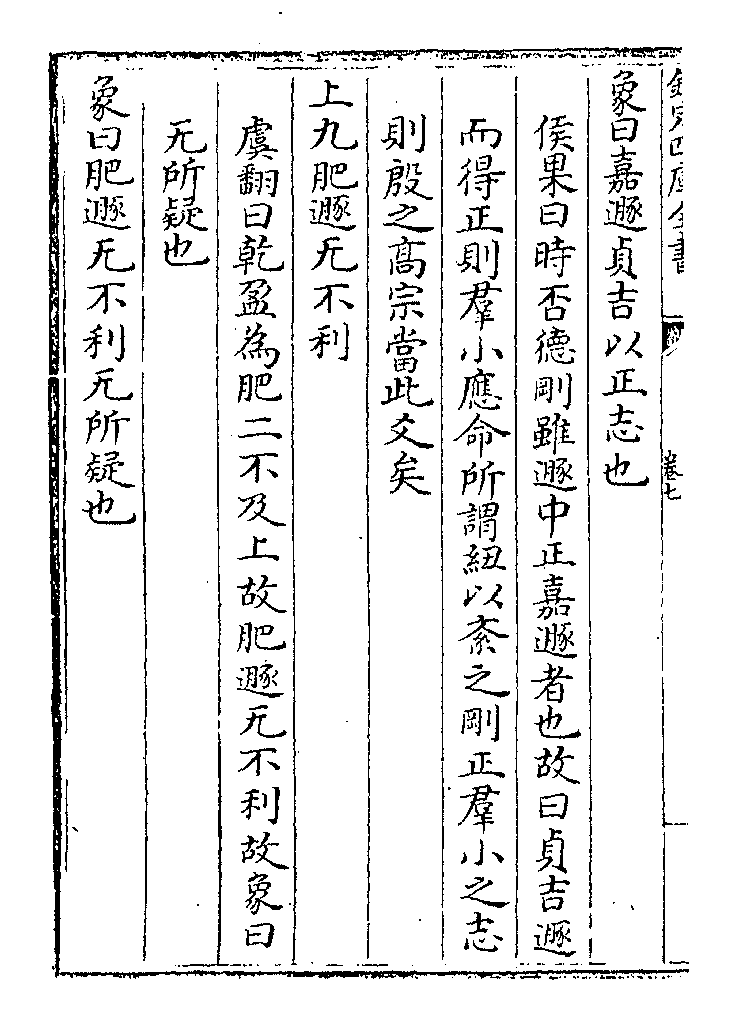 欽定四庫全書
卷七
象曰嘉遯貞吉以正志也
侯果曰時否德剛雖遯中正嘉遯者也故曰貞吉遯
而得正則羣小應命所謂紐以紊之剛正羣小之志
則殷之髙宗當此爻矣
上九肥遯无不利
虞翻曰乾盈為肥二不及上故肥遯无不利故象曰
无所疑也
象曰肥遯无不利无所疑也